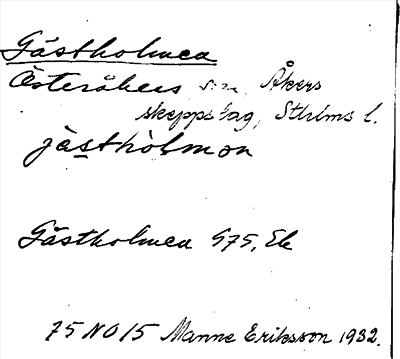 Gästholmen
Österåkers sn, Åkers
skeppslag, Sthlms l.
jästhòlmon
Gästholmen G75, Ek
75 NO 15 Manne Eriksson 1932.